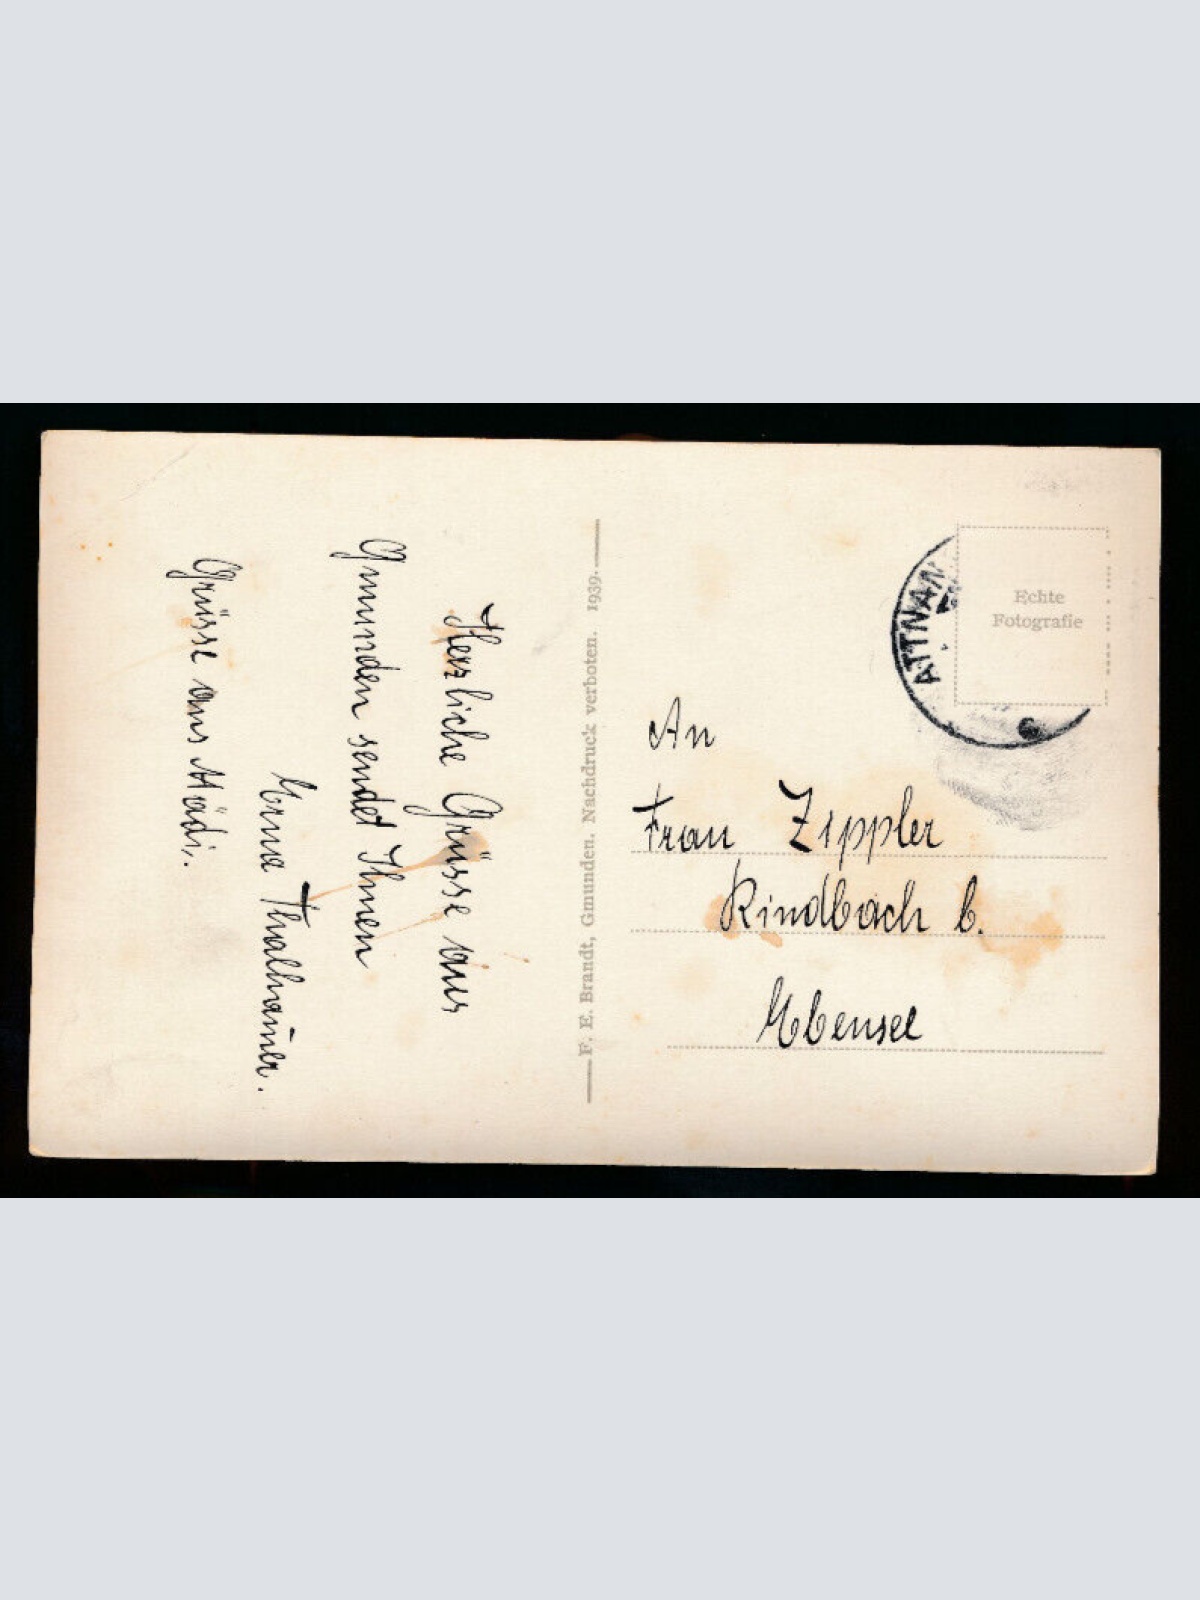 Herzliche Grüsse aus
Gmunden sendet Ihnen
Erna Thalhamer.
Grüsse aus Mädi.
F. E. Brandt, Gmunden. Nachdruck verboten. 1939.
Echte
Fotografie
ATTNAN
An
Frau Zippler
Rindbach b.
Ebensee